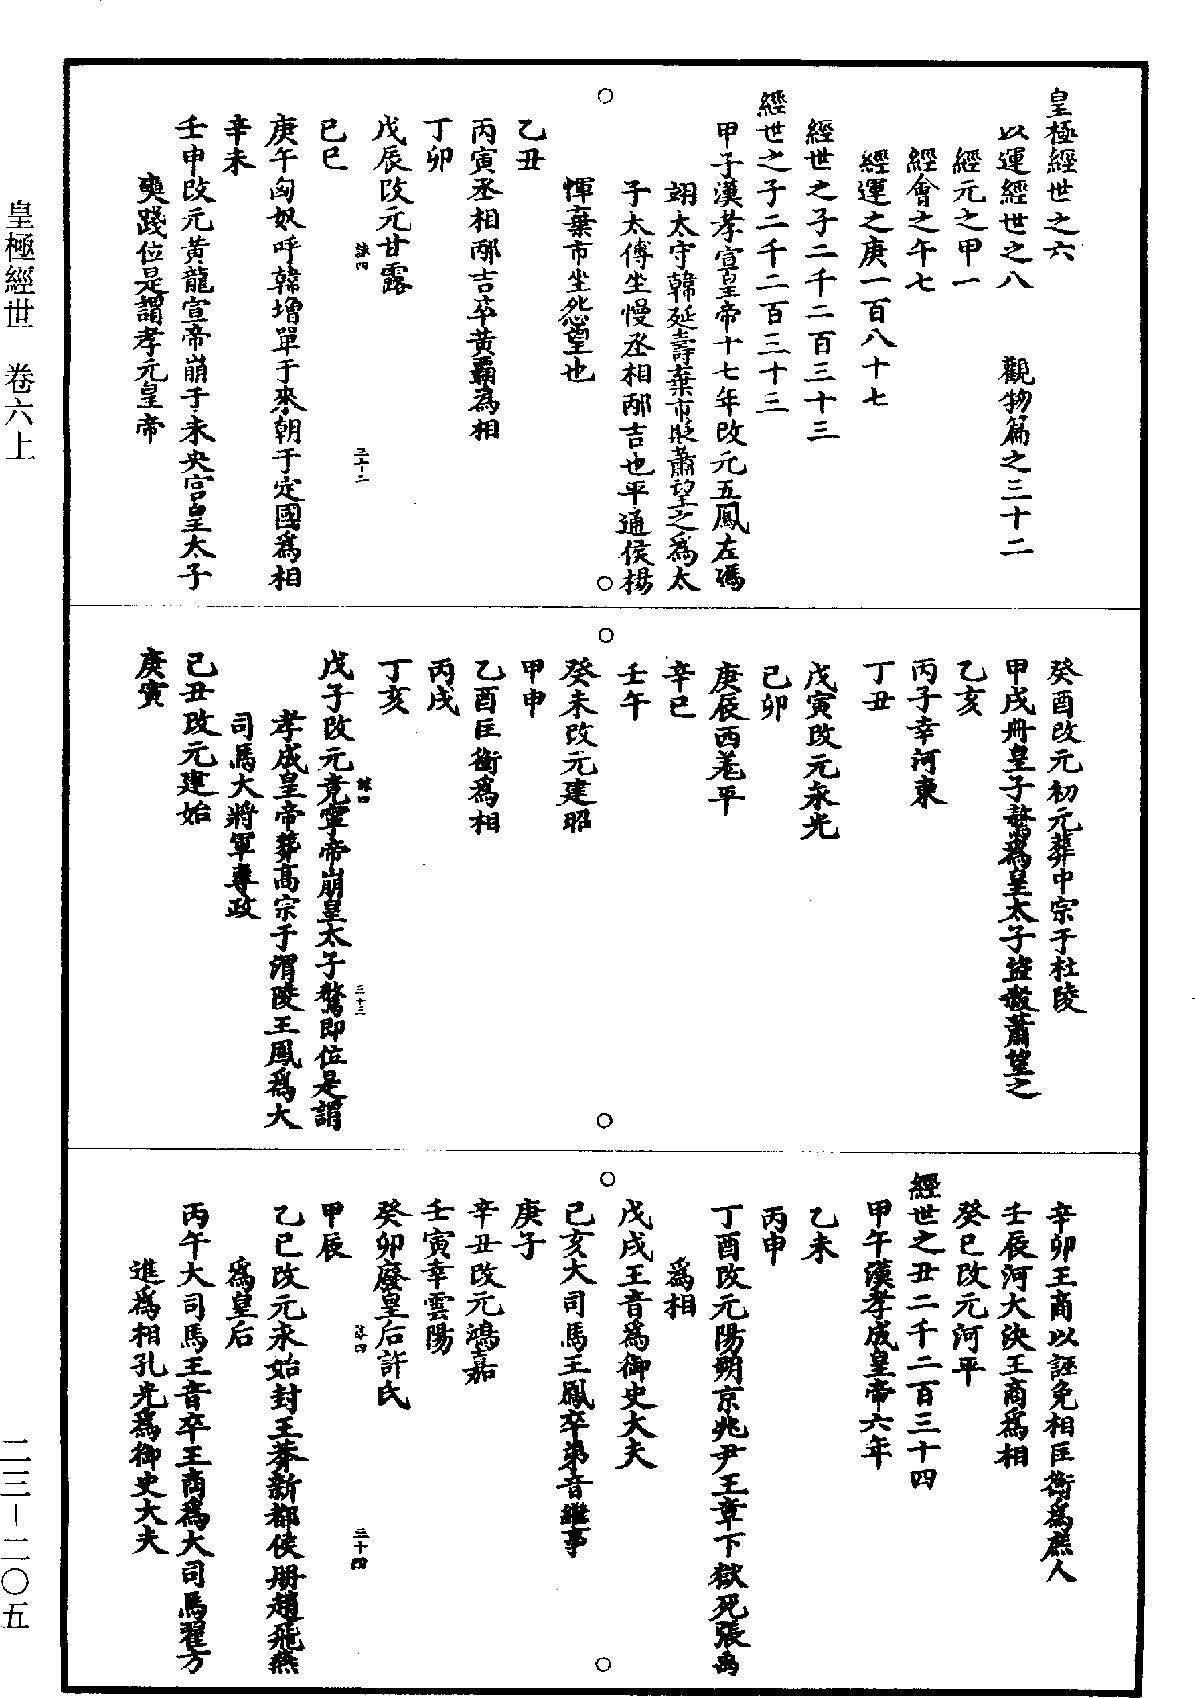 皇極經世之六
以運經世之八　觀物篇之三十二
經元之甲一
經會之午七
經運之庚一百八十七
經世之子二千二百三十三
經世之子二千二百三十三
甲子漢孝宣皇帝十七年改元五鳳左馮
翊太守韓延壽棄市貶蕭望之爲太
子太傅坐慢丞相邴吉也平通侯楊
惲棄市坐怨望也
乙丑
丙寅丞相邴吉卒黃霸為相
丁卯
戊辰改元甘露
三十二
己巳
庚午匈奴呼韓增單于來朝于定國爲相
辛未
壬申改元黃龍宣帝崩于未央宮皇太子
奭踐位是謂孝元皇帝
癸酉改元初元葬中宗于杜陵
甲戌册皇子驁爲皇太子盜殺蕭望之
乙亥
丙子幸河東
丁丑
戊寅改元永光
己卯
庚辰西羌平
辛巳
壬午
癸未改元建昭
甲申
乙酉匡衡爲相
丙戌
丁亥
三十三
戊子改元竟寧帝崩皇太子驁即位是謂
孝成皇帝葬高宗于渭陵王鳳爲大
司馬大將軍專政
己丑改元建始
庚寅
辛卯王商以誣免相匡衡爲庶人
壬辰河大決王商爲相
癸巳改元河平
經世之丑二千二百三十四
甲午漢孝成皇帝六年
乙未
丙申
丁酉改元陽朔京兆尹王章下獄死張禹
爲相
戊戌王音爲御史大夫
己亥大司馬王鳳卒弟音繼事
庚子
辛丑改元鴻嘉
壬寅幸雲陽
癸卯廢皇后許氏
三十四
甲辰
乙巳改元永始封王莽新都侯册趙飛燕
爲皇后
丙午大司馬王音卒王商爲大司馬翟方
進爲相孔光爲御史大夫
皇極經世　卷六上
二三－二〇五